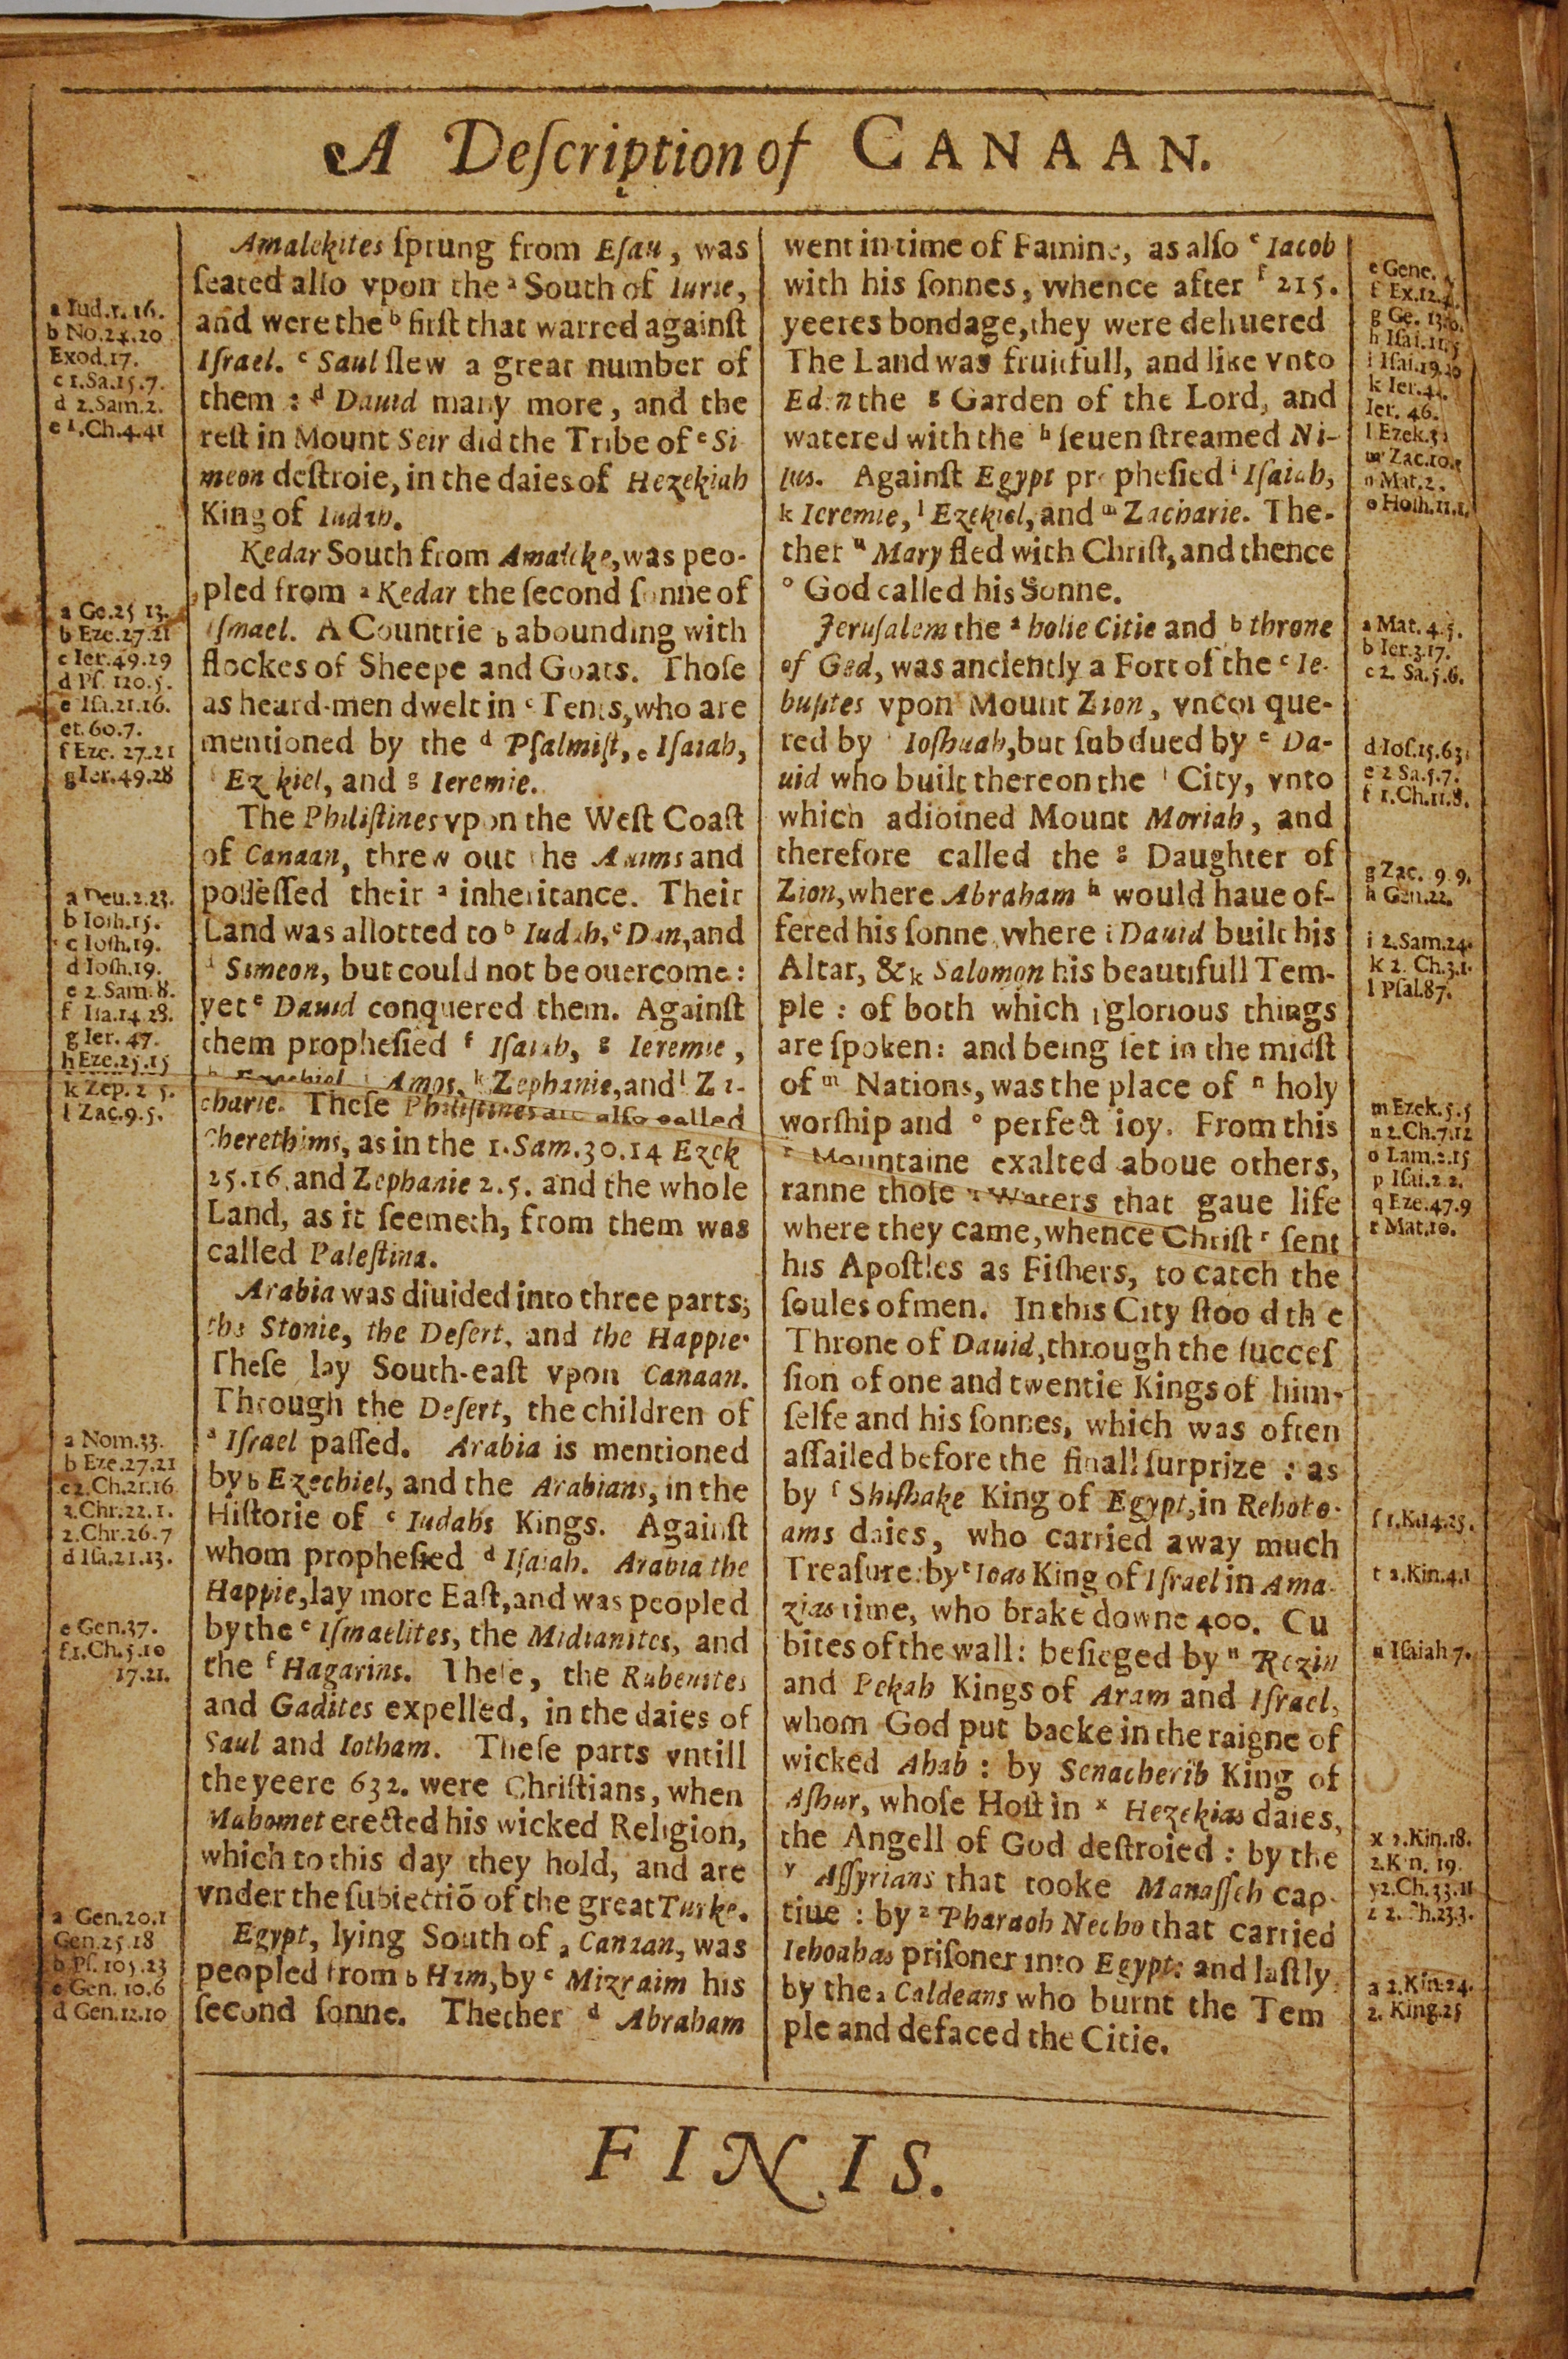 A Deſcription of CANAAN.
a Iud.1.16.
b No.24.20
Exod.17.
c 1.Sa.15.7.
d 2.Sam.2.
e 1.Ch.4.41
a Ge.25 13.
b Eze.27.21
c Ier.49.29
d Pſ. 120.5.
e Iſa.21.16.
et.60.7.
f Eze. 27.21
g Ier.49.28
a Deu.2.23.
b Ioſh.15.
c Ioſh.19.
d Ioſh.19.
e 2.Sam.8.
f Iſa.14 28.
g Ier. 47.
h Eze.25.15
k Zep. 2 5.
l Zac.9.5.
a Nom.33.
b Eze.27.21
c 2.Ch.21.16
2.Chr.22.1.
2.Chr.26.7
d Iſa.21.13.
e Gen.37.
f 1.Ch.5.10
17.21.
a Gen.20.1
Gen.25.18
b Pſ. 105.23
c Gen. 10.6
d Gen.12.10
Amalekites ſprung from Eſau, was
ſeated alſo vpon the a South of Iurie,
and were the b firſt that warred againſt
Iſrael. c Saul ſlew a great number of
them : d Dauid many more, and the
reſt in Mount Seir did the Tribe of e Si
meon deſtroie, in the daies of Hezekiah
King of Iudah.
Kedar South from Amaleke, was peo-
pled from a Kedar the ſecond ſonne of
Iſmael. A Countrie b abounding with
flockes of Sheepe and Goats. Thoſe
as heard-men dwelt in c Tents, who are
mentioned by the d Pſalmiſt, e Iſaiah,
f Ez kiel, and g Ieremie.
The Philiſtines vpon the Weſt Coaſt
of Canaan, threw out the Auims and
poſſeſſed their a inheritance. Their
Land was allotted to b Iudah, c Dan, and
d Simeon, but could not be ouercome :
yet e Dauid conquered them. Againſt
them propheſied f Iſaiah, g Ieremie,
Amos, k Zephanie, and l Za-
charie. Theſe Philiſtines are alſo called
Cherethims, as in the 1.Sam.30.14 Ezek
25.16. and Zephanie 2.5. and the whole
Land, as it ſeemeth, from them was
called Paleſtina.
Arabia was diuided into three parts;
the Stonie, the Deſert, and the Happie.
Theſe lay South-eaſt vpon Canaan.
Through the Deſert, the children of
a Iſrael paſſed. Arabia is mentioned
by b Ezechiel, and the Arabians, in the
Hiſtorie of c Iudahs Kings. Againſt
whom propheſied d Iſaiah. Arabia the
Happie, lay more Eaſt, and was peopled
by the e Iſmaelites, the Midianites, and
the f Hagarins. Theſe, the Rubenites
and Gadites expelled, in the daies of
Saul and Iotham. Theſe parts vntill
the yeere 632. were Chriſtians, when
Mahomet erected his wicked Religion,
which to this day they hold, and are
vnder the ſubiectiō of the great Turke.
Egypt, lying South of a Canaan, was
peopled from b Ham, by c Mizraim his
ſecond ſonne. Thether d Abraham
went in time of Famine, as alſo e Iacob
with his ſonnes, whence after f 215.
yeeres bondage, they were deliuered
The Land was fruitfull, and like vnto
Eden the g Garden of the Lord, and
watered with the h ſeuen ſtreamed Ni-
lus. Againſt Egypt propheſied i Iſaiah,
k Ieremie, l Ezekiel, and m Zacharie. The-
ther n Mary fled with Chriſt, and thence
o God called his Sonne.
Jeruſalem the a holie Citie and b throne
of God, was anciently a Fort of the c Ie-
buſites vpon Mount Zion, vnconque-
red by Ioſhuah, but ſubdued by e Da-
uid who built thereon the f City, vnto
which adioined Mount Moriah, and
therefore called the g Daughter of
Zion, where Abraham h would haue of-
fered his ſonne, where i Dauid built his
Altar, & k Salomon his beautifull Tem-
ple : of both which l glorious things
are ſpoken : and being ſet in the midſt
of m Nations, was the place of n holy
worſhip and o perfect ioy. From this
p Mountaine exalted aboue others,
ranne thoſe q Waters that gaue life
where they came, whence Chriſt r ſent
his Apoſtles as Fiſhers, to catch the
ſoules of men. In this City ſtoo d th e
Throne of Dauid, through the ſucceſ
ſion of one and twentie Kings of him-
ſelfe and his ſonnes, which was often
aſſailed before the finall ſurprize : as
by ſ Shiſhake King of Egypt, in Rehobo-
ams daies, who carried away much
Treaſure : by t Ioas King of Iſrael in Ama-
zias time, who brake downe 400. Cu
bites of the wall : beſieged by u Rezin
and Pekah Kings of Aram and Iſrael,
whom God put backe in the raigne of
wicked Ahab : by Senacherib King of
Aſhur, whoſe Hoſt in x Hezekias daies,
the Angell of God deſtroied : by the
y Aſſyrians that tooke Manaſſeh cap-
tiue : by z Pharaoh Necho that carried
Iehoahas priſoner into Egypt : and laſtly
by the a Caldeans who burnt the Tem
ple and defaced the Citie.
e Gene.
f Ex.12.
g Ge. 13.
h Iſai.11.
i Iſai.19.
k Ier.
Ier. 46.
l Ezek.
m Zac.10.
n Mat.2.
o Hoſh.11.1.
a Mat. 4.5.
b Ier.3.17.
c 2. Sa.5.6.
d Ioſ.15.63.
e 2 Sa.5.7.
f 1.Ch.11.8.
g Zac. 9 9.
h Gen.22.
i 2.Sam.24.
k 2. Ch.3.1.
l Pſal.87.
m Ezek.5.5
n 2.Ch.7.12
o Lam.2.15
p Iſai.2 2.
q Eze.47.9
r Mat.10.
ſ 1.K.14.25.
t 2.Kin.4.1
u Iſaiah 7.
x 2.Kin.18.
2.Kin. 19.
y 2.Ch.33.11
z 2. Ch.23.3.
a 2.Kin.24.
2. King.25
FINIS.